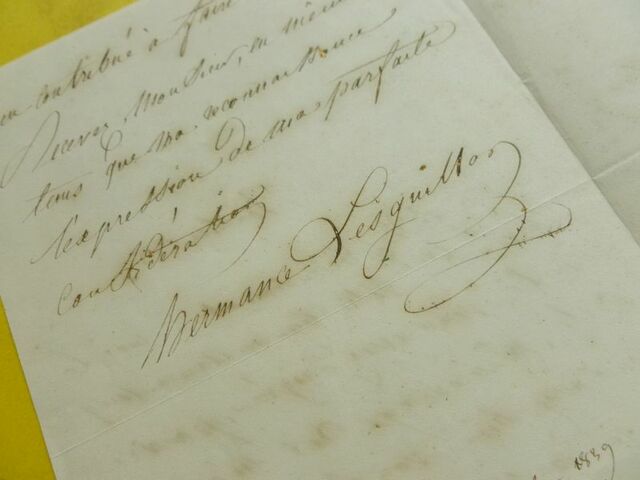 contribué à faire
Recevez, Monsieur, en même
tems que ma reconnaissance
l'expression de ma parfaite
considération
Hermance Lesguillon
1839